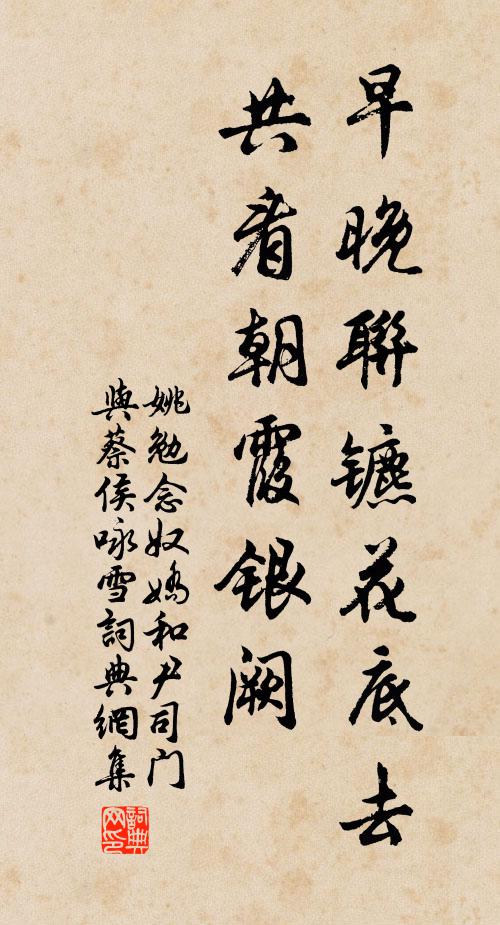 早晚聯镳花底去
共看朝霞银阙
姚勉念奴嬌和尹司门
與蔡侯咏雪詞典網集
詞典网印